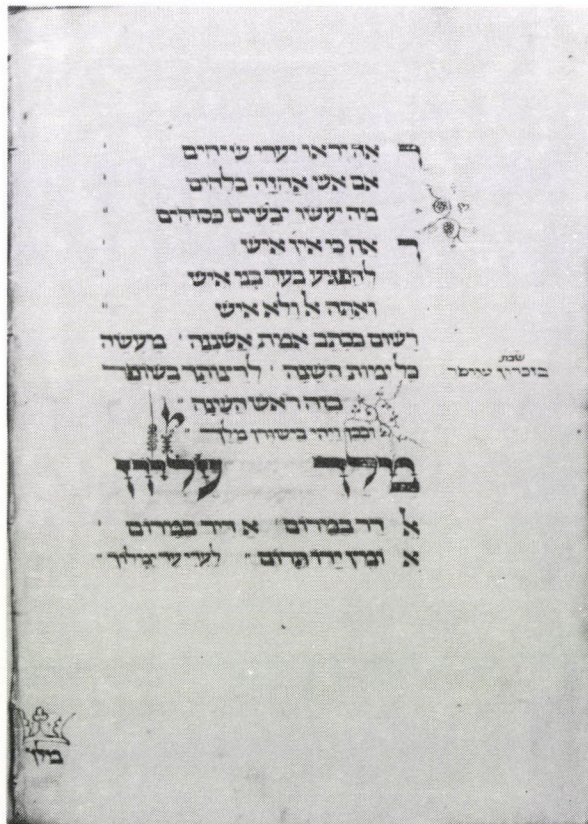 ר אה יראו יערי שיחים
אם אש אחזה בלחים
מה יעשו יבשים כסוחים
ר אה כי אין איש
להפגיע בעד בני איש
ואתה אל ולא איש
רשום בכתב אמת אשננה ׳ מעשה
כל ימות השנה ׳ לרצותך בשופר
שבת
בזכרון שופר
בזה ראש השנה ״
ובכן ויהי בישורון מלך ״
מלך עליון
אל דר במרום ״ א דיר במרום ״
א ומץ ידו תרום ״ לעדי עד ימלוך ״
מלך